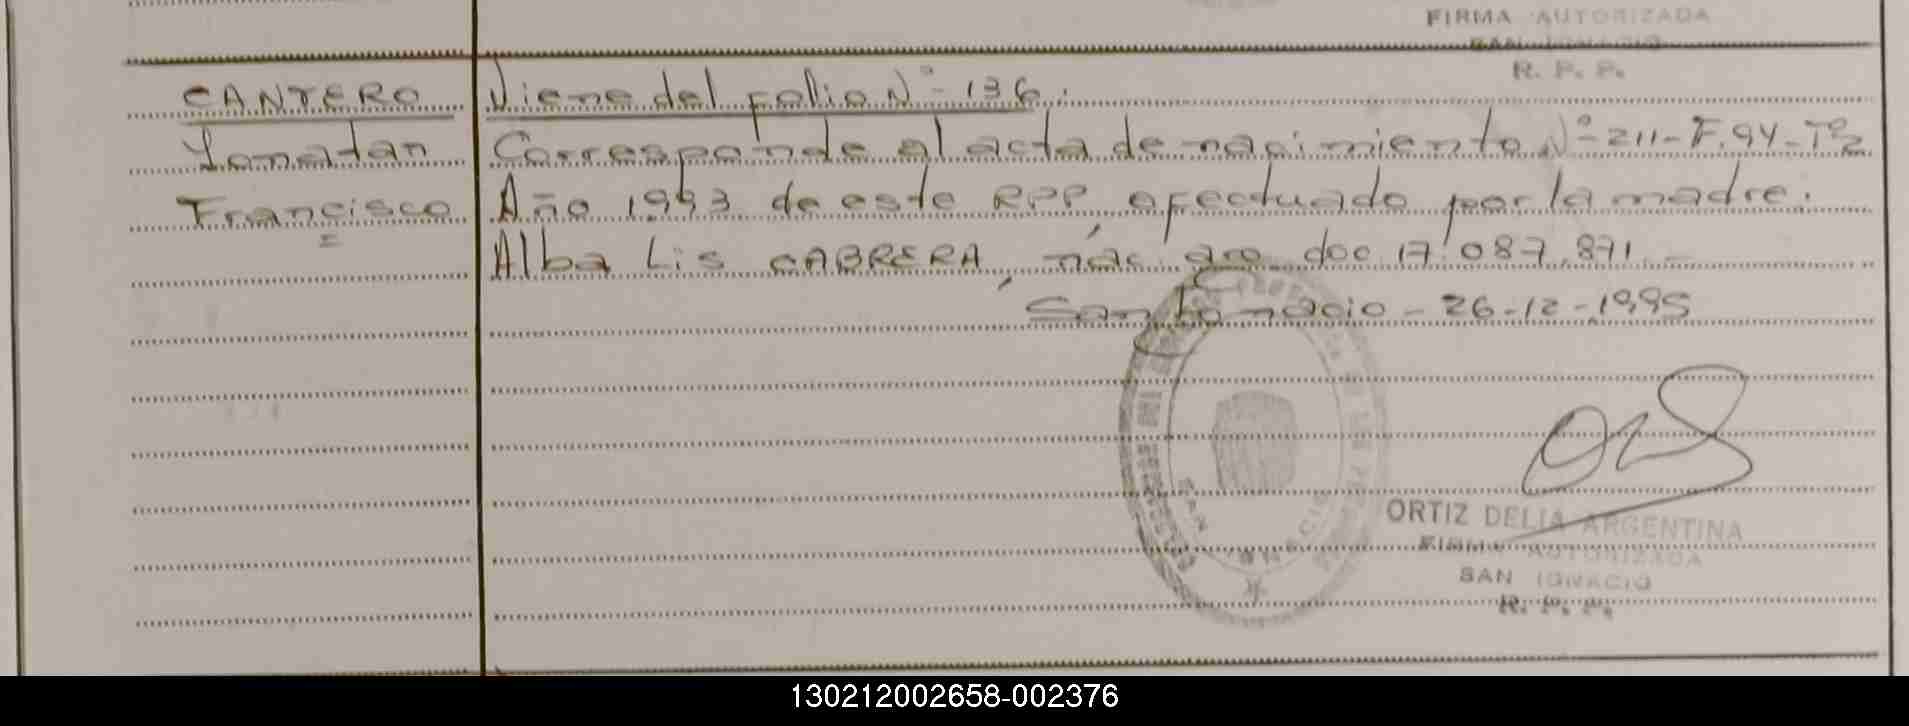 FIRMA AUTORIZADA
SAN IGNACIO
R. P. P.
CANTERO
Yonatan
Francisco
Viene del folio Nº - 136.
Corresponde al acta de nacimiento Nº - 211 - F. 94 - Tº2
Año 1993 de este RPP, efectuado por la madre.
Alba Lis CABRERA, nac. arg. doc 17.087.871 -
San Ignacio - 26-12-1995
SAN IGNACIO
ORTIZ DELIA ARGENTINA
FIRMA AUTORIZADA
SAN IGNACIO
R. P. P.
130212002658-002376